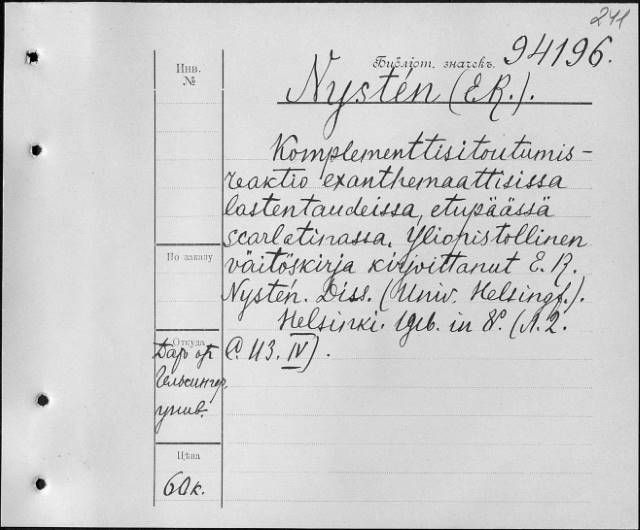 241
Библіот. значекъ. 94196.
Инв.
№
Nystén (E.R.).
Komplementtisitoutumis-
reaktio exanthemaattisissa
lastentaudeissa, etupäässä
scarlatinassa. Yliopistollinen
По заказу
väitöskirja kirjoittanut E. R.
Nystén. Diss. (Univ. Helsingf.).
Helsinki. 1916. in 8°. (A. 2.
Откуда
C. 113. IV).
Даръ отъ
Гельсингф.
унив.
Цѣна
60 к.